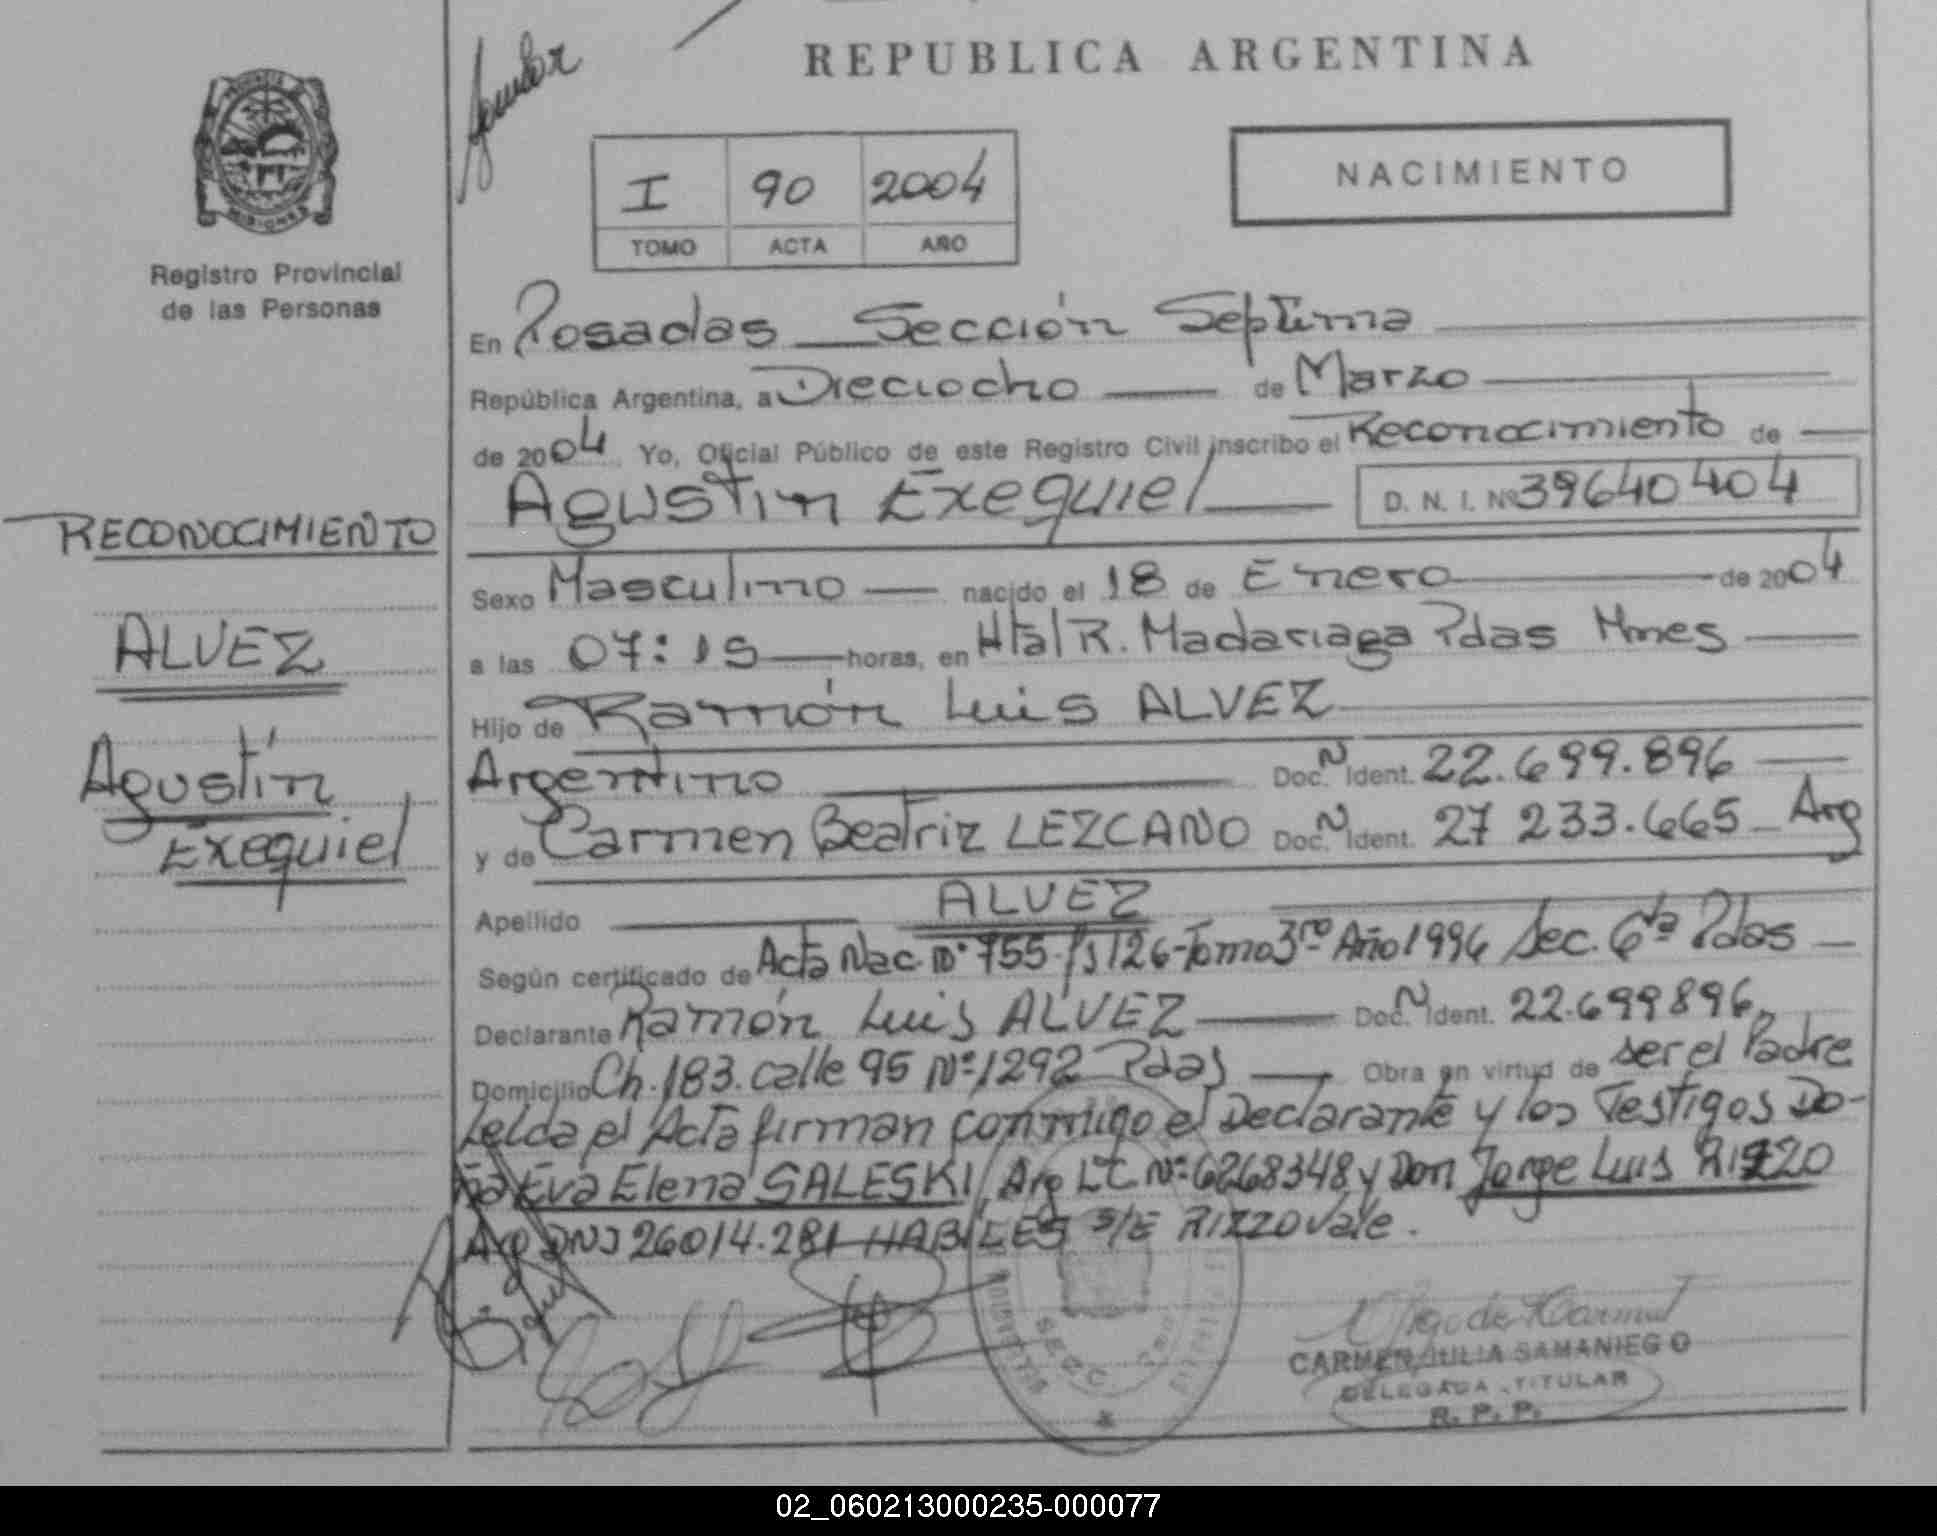 REPUBLICA ARGENTINA
NACIMIENTO
I 90 2004
TOMO ACTA AÑO
PROVINCIA DE MISIONES
Registro Provincial
de las Personas
RECONOCIMIENTO
ALVEZ
Agustín
Exequiel
En Posadas Sección Septima
República Argentina, a Dieciocho de Marzo
de 2004 Yo, Oficial Público de este Registro Civil inscribo el Reconocimiento de
Agustin Exequiel D. N. I. Nº 39640404
Sexo Masculino nacido el 18 de Enero de 2004
a las 07:15 horas, en Htal R. Madariaga Pdas Mnes
Hijo de Ramón Luis ALVEZ
Argentino Doc. N Ident. 22.699.896
y de Carmen Beatriz LEZCANO Doc. N Ident. 27 233.665 Arg
Apellido ALVEZ
Según certificado de Acta Nac. Nº 755-fs 126-Tomo 3ro Año 1996 Sec. 6ta Pdas
Declarante Ramón Luis ALVEZ Doc. N Ident. 22.699896
Domicilio Ch. 183. calle 95 Nº 1292 Pdas Obra en virtud de ser el Padre
Leida el Acta firman conmigo el Declarante y los Testigos Do-
ña Eva Elena SALESKI Arg LC Nº 6268348 y Don Jorge Luis RIZZO
Arg DNI 26014.281 HABILES S/E RIZZO Vale.
CARMEN JULIA SAMANIEGO
DELEGADA TITULAR
R. P. P.
02_060213000235-000077